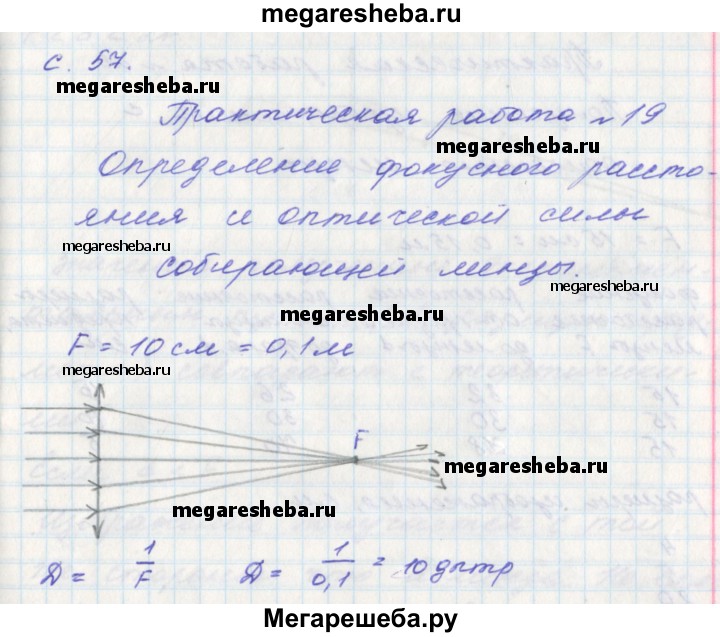 megaresheba.ru
с. 57.
megaresheba.ru
Практическая работа №19
megaresheba.ru
Определение фокусного рассто-
яния и оптической силы
megaresheba.ru
собирающей линзы.
megaresheba.ru
megaresheba.ru
F = 10 см = 0,1 м
megaresheba.ru
F
megaresheba.ru
megaresheba.ru
Д = 1/F Д = 1/0,1 = 10 дптр
Мегарешеба.ру